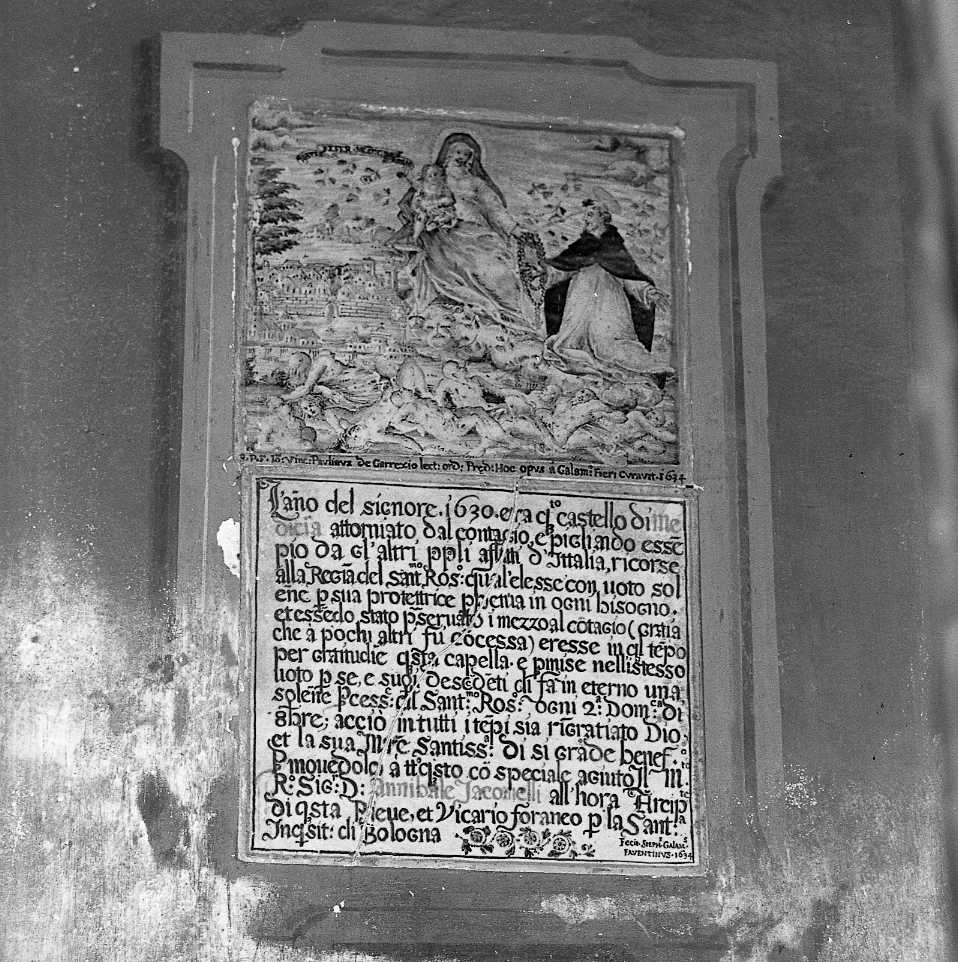 P.F. Io: Vinc: Paulinus de Garrexio lect: ord: Pręd: Hoc opus a Galam: Fieri Curauit. 1634
L'año del signore. 1630. era q̃to castello di me
dicia attorniato dal contagio, e pigliando essẽ
pio da gl'altri ppli d'Ittalia, ricorse
alla Regĩa del santmo Ros: qual'elesse con uoto sol
eñe p sua protettrice in ogni bisogno.
et essẽdo stato pseruato i mezzo al cõtagio (gratia
che à pochi altri fù cõcessa) eresse in ql tẽpo
per gratitudie qsta capella. e pmise nell'istesso
uoto p se, e suoi Descẽdẽti di fa in eterno una
soleñe Pcess: del Sant:mo Ros: ogni 2.a Dom:ca di
8bre; acciò in tutti i tẽpi sia rigratiato Dio,
et la sua Mre Santiss.a di si grãde benef:o
Pmouẽdolo, a ttoqsto cõ speciale agiuto Il M.to
R: Sig:r D: Annibale Iacomelli all'hora Arcipte
di qsta Pieue, et Vicario foraneo p la Sant:a
Inqsit: di Bologna
Fecit Steph Galam
Fauentinus. 1634